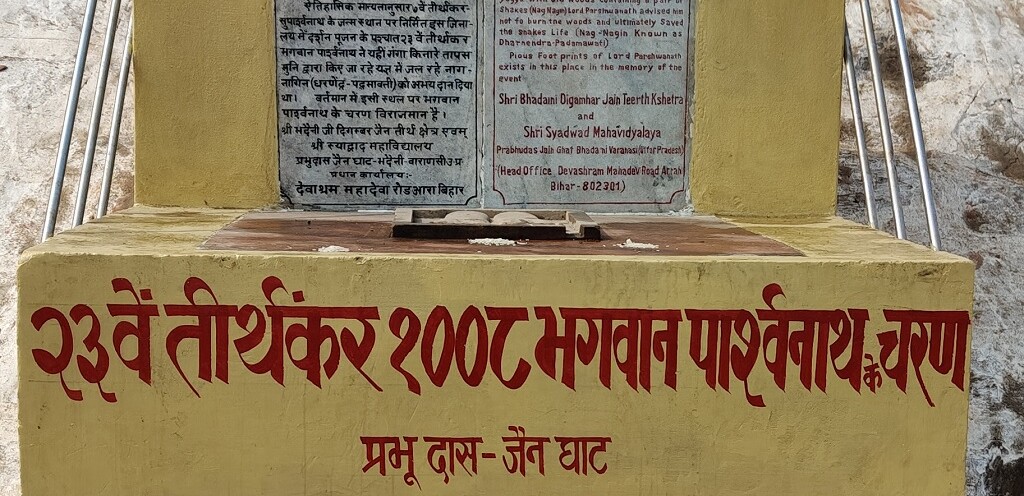 ऐतिहासिक मान्यतानुसार ७वें तीर्थंकर-
सुपाईवनाथ के जन्म स्थान पर निर्मित इस जिना-
लय में दर्शन पूजन के पश्चात २३ वें तीर्थंकर
भगवान पाईवनाथ ने यहीं गंगा किनारे तापस
मुनि द्वारा किए जा रहे यज्ञ में जल रहे नाग-
नागिन (धरणेंद्र- पद्मावती) को अभय दान दिया
था। वर्तमान में इसी स्थल पर भगवान
पाईवनाथ के चरण विराजमान है।
श्री भदैनी जी दिगम्बर जैन तीर्थ क्षेत्र एवम्
श्री स्याद्वाद महाविद्यालय
प्रभुदास जैन घाट-भदैनी-वाराणसी उ·प्र
प्रधान कार्यालय:-
देवाश्रम महादेवा रोड आरा बिहार
Snakes (Nag Nagin) Lord Parshwanath advised him
not to burn the woods and ultimately Saved
the snakes Life (Nag-Nagin Known as
Dharnendra-Padamawati)
Pious Foot prints of Lord Parshwanath
exists in this place in the memory of the
event
Shri Bhadaini Digamhar Jain Teerth Kshetra
and
Shri Syadwad Mahavidyalaya
Prabhudas Jain Ghat Bhadani Varanasi (Uttar Pradesh)
(Head Office Devashram Mahadev Road Arrah
Bihar- 802301)
२३वें तीर्थंकर १००८ भगवान पार्श्वनाथ के चरण
प्रभू दास- जैन घाट